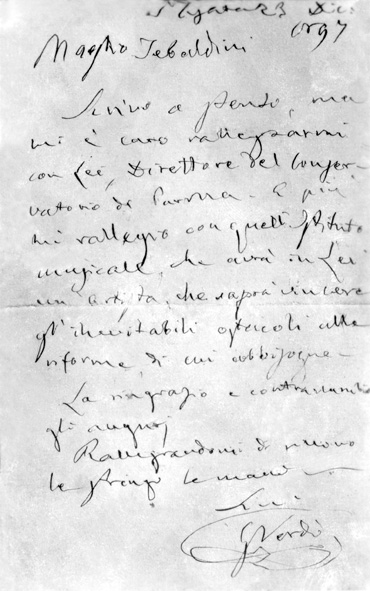 S. Agata 23 Dic.
1897
Maestro Tebaldini
Scrivo a stento, ma
mi è caro rallegrarmi
con Lei, Direttore del Conser-
vatorio di Parma. E più
mi rallegro con quell'Istituto
musicale, che avrà in Lei
un'artista, che saprà vincere
gl'inevitabili ostacoli alle
riforme, di cui abbisogna
La ringrazio e contraccambio
gli augurj
Rallegrandomi di nuovo
le stringo le mani
Suo
G Verdi